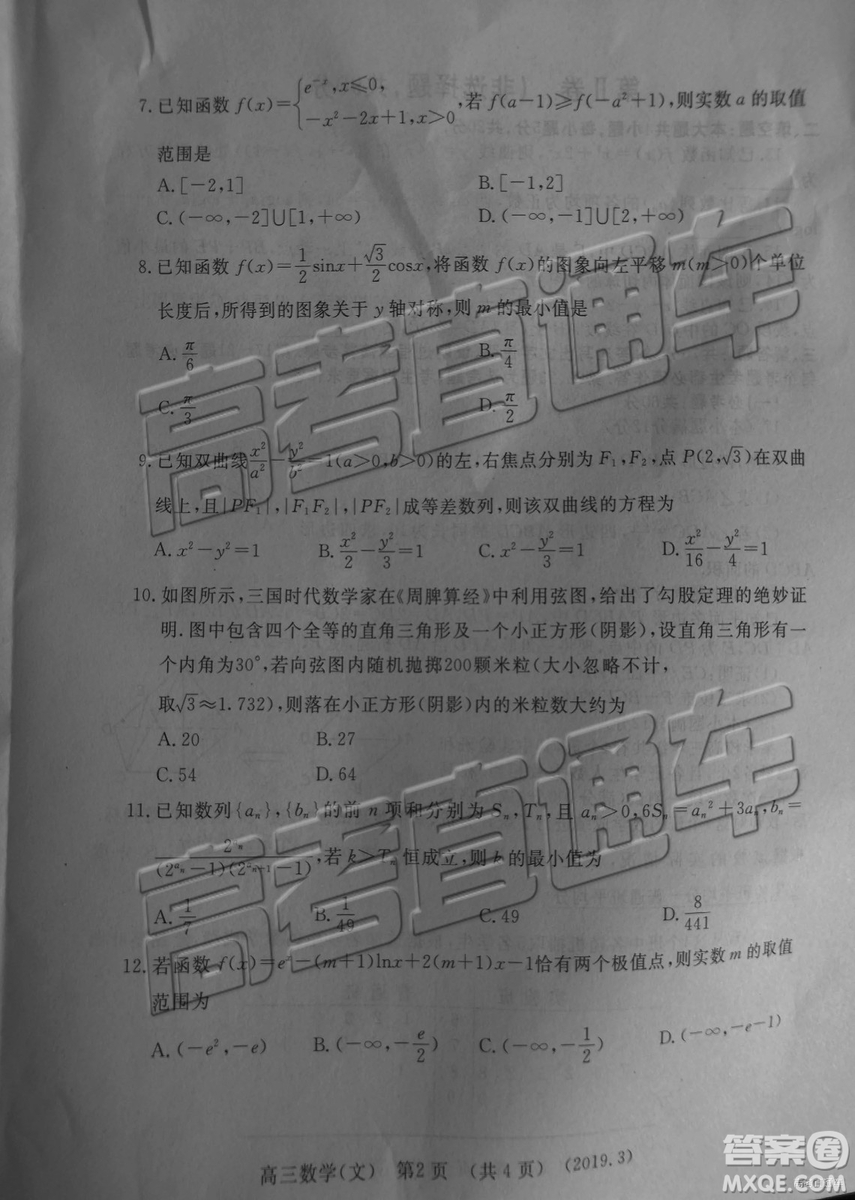 7.已知函数 f(x)={e^{-x},x≤0, -x²-2x+1,x>0 ,若 f(a-1)≥f(-a²+1),则实数 a 的取值
范围是
A.[-2,1] B.[-1,2]
C.(-∞,-2]∪[1,+∞) D.(-∞,-1]∪[2,+∞)
8.已知函数 f(x)=1/2 sinx+√3/2 cosx,将函数 f(x)的图象向左平移 m(m>0)个单位
长度后,所得到的图象关于 y 轴对称,则 m 的最小值是
A.π/6 B.π/4
C.π/3 D.π/2
9.已知双曲线 x²/a²-y²/b²=1(a>0,b>0)的左,右焦点分别为 F₁,F₂,点 P(2,√3)在双曲
线上,且|PF₁|,|F₁F₂|,|PF₂|成等差数列,则该双曲线的方程为
A.x²-y²=1 B.x²/2-y²/3=1 C.x²-y²/3=1 D.x²/16-y²/4=1
10.如图所示,三国时代数学家在《周脾算经》中利用弦图,给出了勾股定理的绝妙证
明.图中包含四个全等的直角三角形及一个小正方形(阴影),设直角三角形有一
个内角为30°,若向弦图内随机抛掷200颗米粒(大小忽略不计,
取√3≈1.732),则落在小正方形(阴影)内的米粒数大约为
A.20 B.27
C.54 D.64
11.已知数列{aₙ},{bₙ}的前 n 项和分别为 Sₙ,Tₙ,且 aₙ>0,6Sₙ=aₙ²+3aₙ,bₙ=
,若 k>Tₙ 恒成立,则 k 的最小值为
A.1/7 B.1/49 C.49 D.8/441
12.若函数 f(x)=eˣ-(m+1)lnx+2(m+1)x-1恰有两个极值点,则实数 m 的取值
范围为
A.(-e²,-e) B.(-∞,-e/2) C.(-∞,-1/2) D.(-∞,-e-1)
高三数学(文) 第2页 (共4页) (2019.3)
高考直通车
高考直通车
答案圈
MXQE.COM